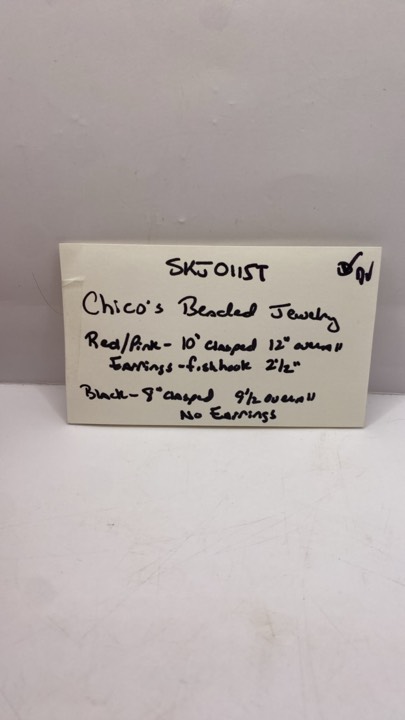 SKJ0115T
Chico's Beaded Jewelry
Red/Pink - 10" Clasped 12" overall
Earrings - fishhook 2 1/2"
Black - 8" Clasped 9 1/2 overall
No Earrings